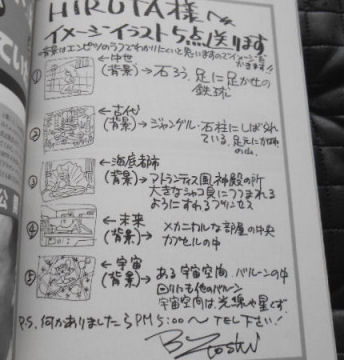 HIRUTA様へ
イメージイラスト5点送ります
背景はエンピツのラフでわかりにくいと思いますのでイメージ書かきます!!
① 中世
(背景)→石ろう、足に足かせの
鉄球
② 古代
(背景)→ジャングル・石柱にしばられ
ている、足元に
の山、
③ 海底都市
(背景)→アトランティス風神殿の所
大きなシャコ貝につつまれる
ようにすわるプリンセス
④ 未来
(背景)→メカニカルな部屋の中央
カプセルの中
⑤ 宇宙
(背景)→ある宇宙空間、バルーンの中
回りにも他のバルーン
宇宙空間は、光線や星くず、
P.S. 何かありましたらPM5:00〜TEL下さい!